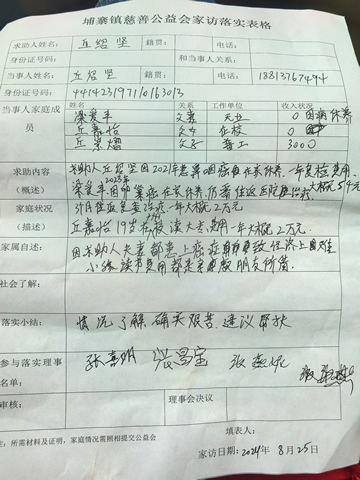 埔寨镇慈善公益会家访落实表格
求助人姓名: 丘紹坚 籍贯: 电话:
身份证号码: 和当事人关系:
当事人姓名: 丘紹坚 籍贯: 电话: 18813767494
身份证号码: 441423197110163013
当事人家庭成员 姓名 关系 工作单位 收入状况
梁爱丰 夫妻 无业 0 因病休养
丘嘉怡 父女 在校 0
丘 父子 普工 3000
求助内容 求助人丘紹坚因2021年患鼻咽癌症在家休养,一年复检费用
(概述) 梁爱丰2023年因 癌在家休养,仍需住返医院 治疗大概5万元
家庭状况 3个月住返复查治疗一年大概2万元
(描述) 丘嘉怡19岁在校读大专费用一年大概2万元.
家属自述: 因求助人夫妻都患上癌症 致经济上困难
小孩读书费用都是亲戚朋友所借.
社会了解:
落实小结: 情况了解,确实艰苦.建议帮扶
参与落实理事名单: 张喜明 张昌宝
审核: 理事会决议
填表人:
注: 所需材料及证明, 家庭情况需照相提交公益会
家访日期: 2024年8月25日